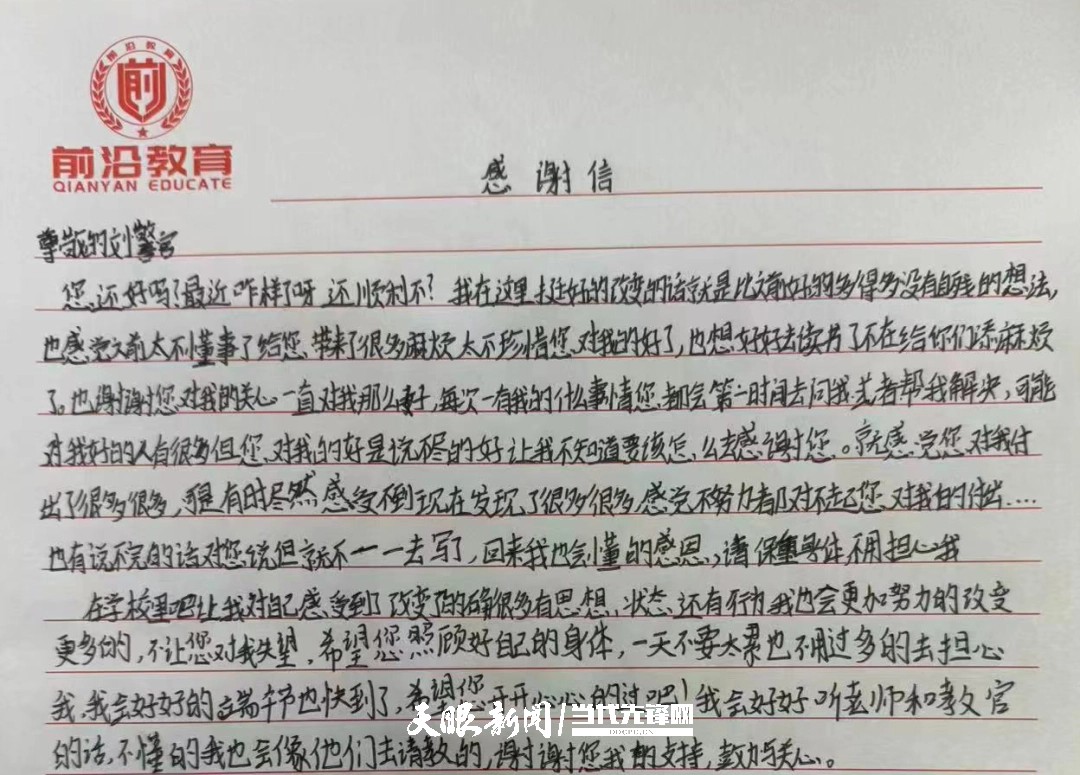 前沿教育
前
前沿教育
QIANYAN EDUCATE
感谢信
尊敬的刘警官
您还好吗?最近咋样了呀 还顺利不?我在这里挺好的改变的话就是比之前好的多得多没有自残的想法,
也感觉之前太不懂事了给您带来了很多麻烦太不珍惜您对我的好了,也想好好去读书了不在给你们添麻烦
了。也谢谢您对我的关心一直对我那么好,每次一有我的什么事情您都会第一时间去问我或者帮我解决,可能
对我好的人有很多但您对我的好是说不尽的好让我不知道要该怎么去感谢您。就感觉您对我付
出了很多很多,有时尽然感受不到现在发现了很多很多感觉不努力都对不起您对我的付出....
也有说不完的话对您说但就不一一去写了,回来我也会懂的感恩,请保重身体不用担心我
在学校里吧让我对自己感受到了改变的确很多有思想、状态、还有行为我也会更加努力的改变
更多的,不让您对我失望,希望您照顾好自己的身体,一天不要太累也不用过多的去担心
我,我会好好的端午节也快到了,希望您开开心心的过吧!我会好好听老师和教官
的话,不懂的我也会像他们去请教的,谢谢您我的支持,鼓力与关心。
天眼新闻 当代先锋网
DDCPC.CN